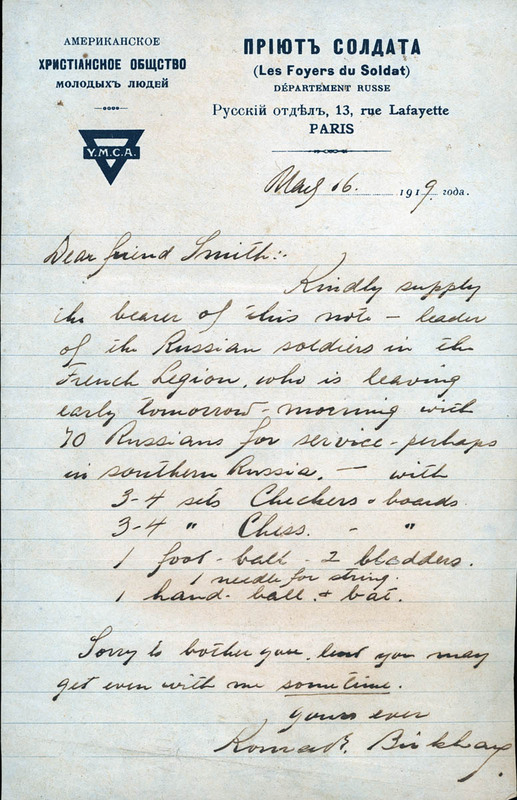 АМЕРИКАНСКОЕ
ХРИСТІАНСКОЕ ОБЩСТВО
МОЛОДЫХЪ ЛЮДЕЙ
Y.M.C.A.
ПРІЮТЪ СОЛДАТА
(Les Foyers du Soldat)
DÉPARTEMENT RUSSE
Русскій отдѣлъ, 13, rue Lafayette
PARIS
16. 1919 года.
Dear friend Smith:.
Kindly supply
the bearer of this note – leader
of the Russian soldiers in the
French Legion, who is leaving
early tomorrow-morning with
70 Russians for service - perhaps
in southern Russia. — with
3-4 sets Checkers & boards.
3-4 " Chess. - "
1 foot-ball - 2 bladders.
1 needle for string.
1 hand-ball & bat.
Sorry to bother you, but you may
get even with me sometime.
Yours ever